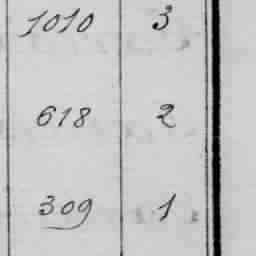 1010 3
618 2
309 1